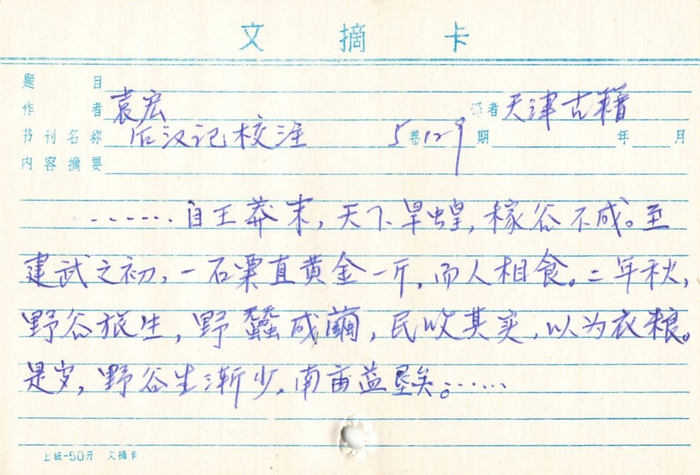 文摘卡
题目
作者 袁宏 译者 天津古籍
书刊名称 后汉记校注 5卷129期 年 月
内容摘要
……自王莽末，天下旱蝗，稼谷不成。至
建武之初，一石粟直黄金一斤，而人相食。二年秋，
野谷旅生，野蠶成繭，民收其实，以为衣粮。
是岁，野谷生渐少，南亩益垦矣。……
上纸-50开 文摘卡